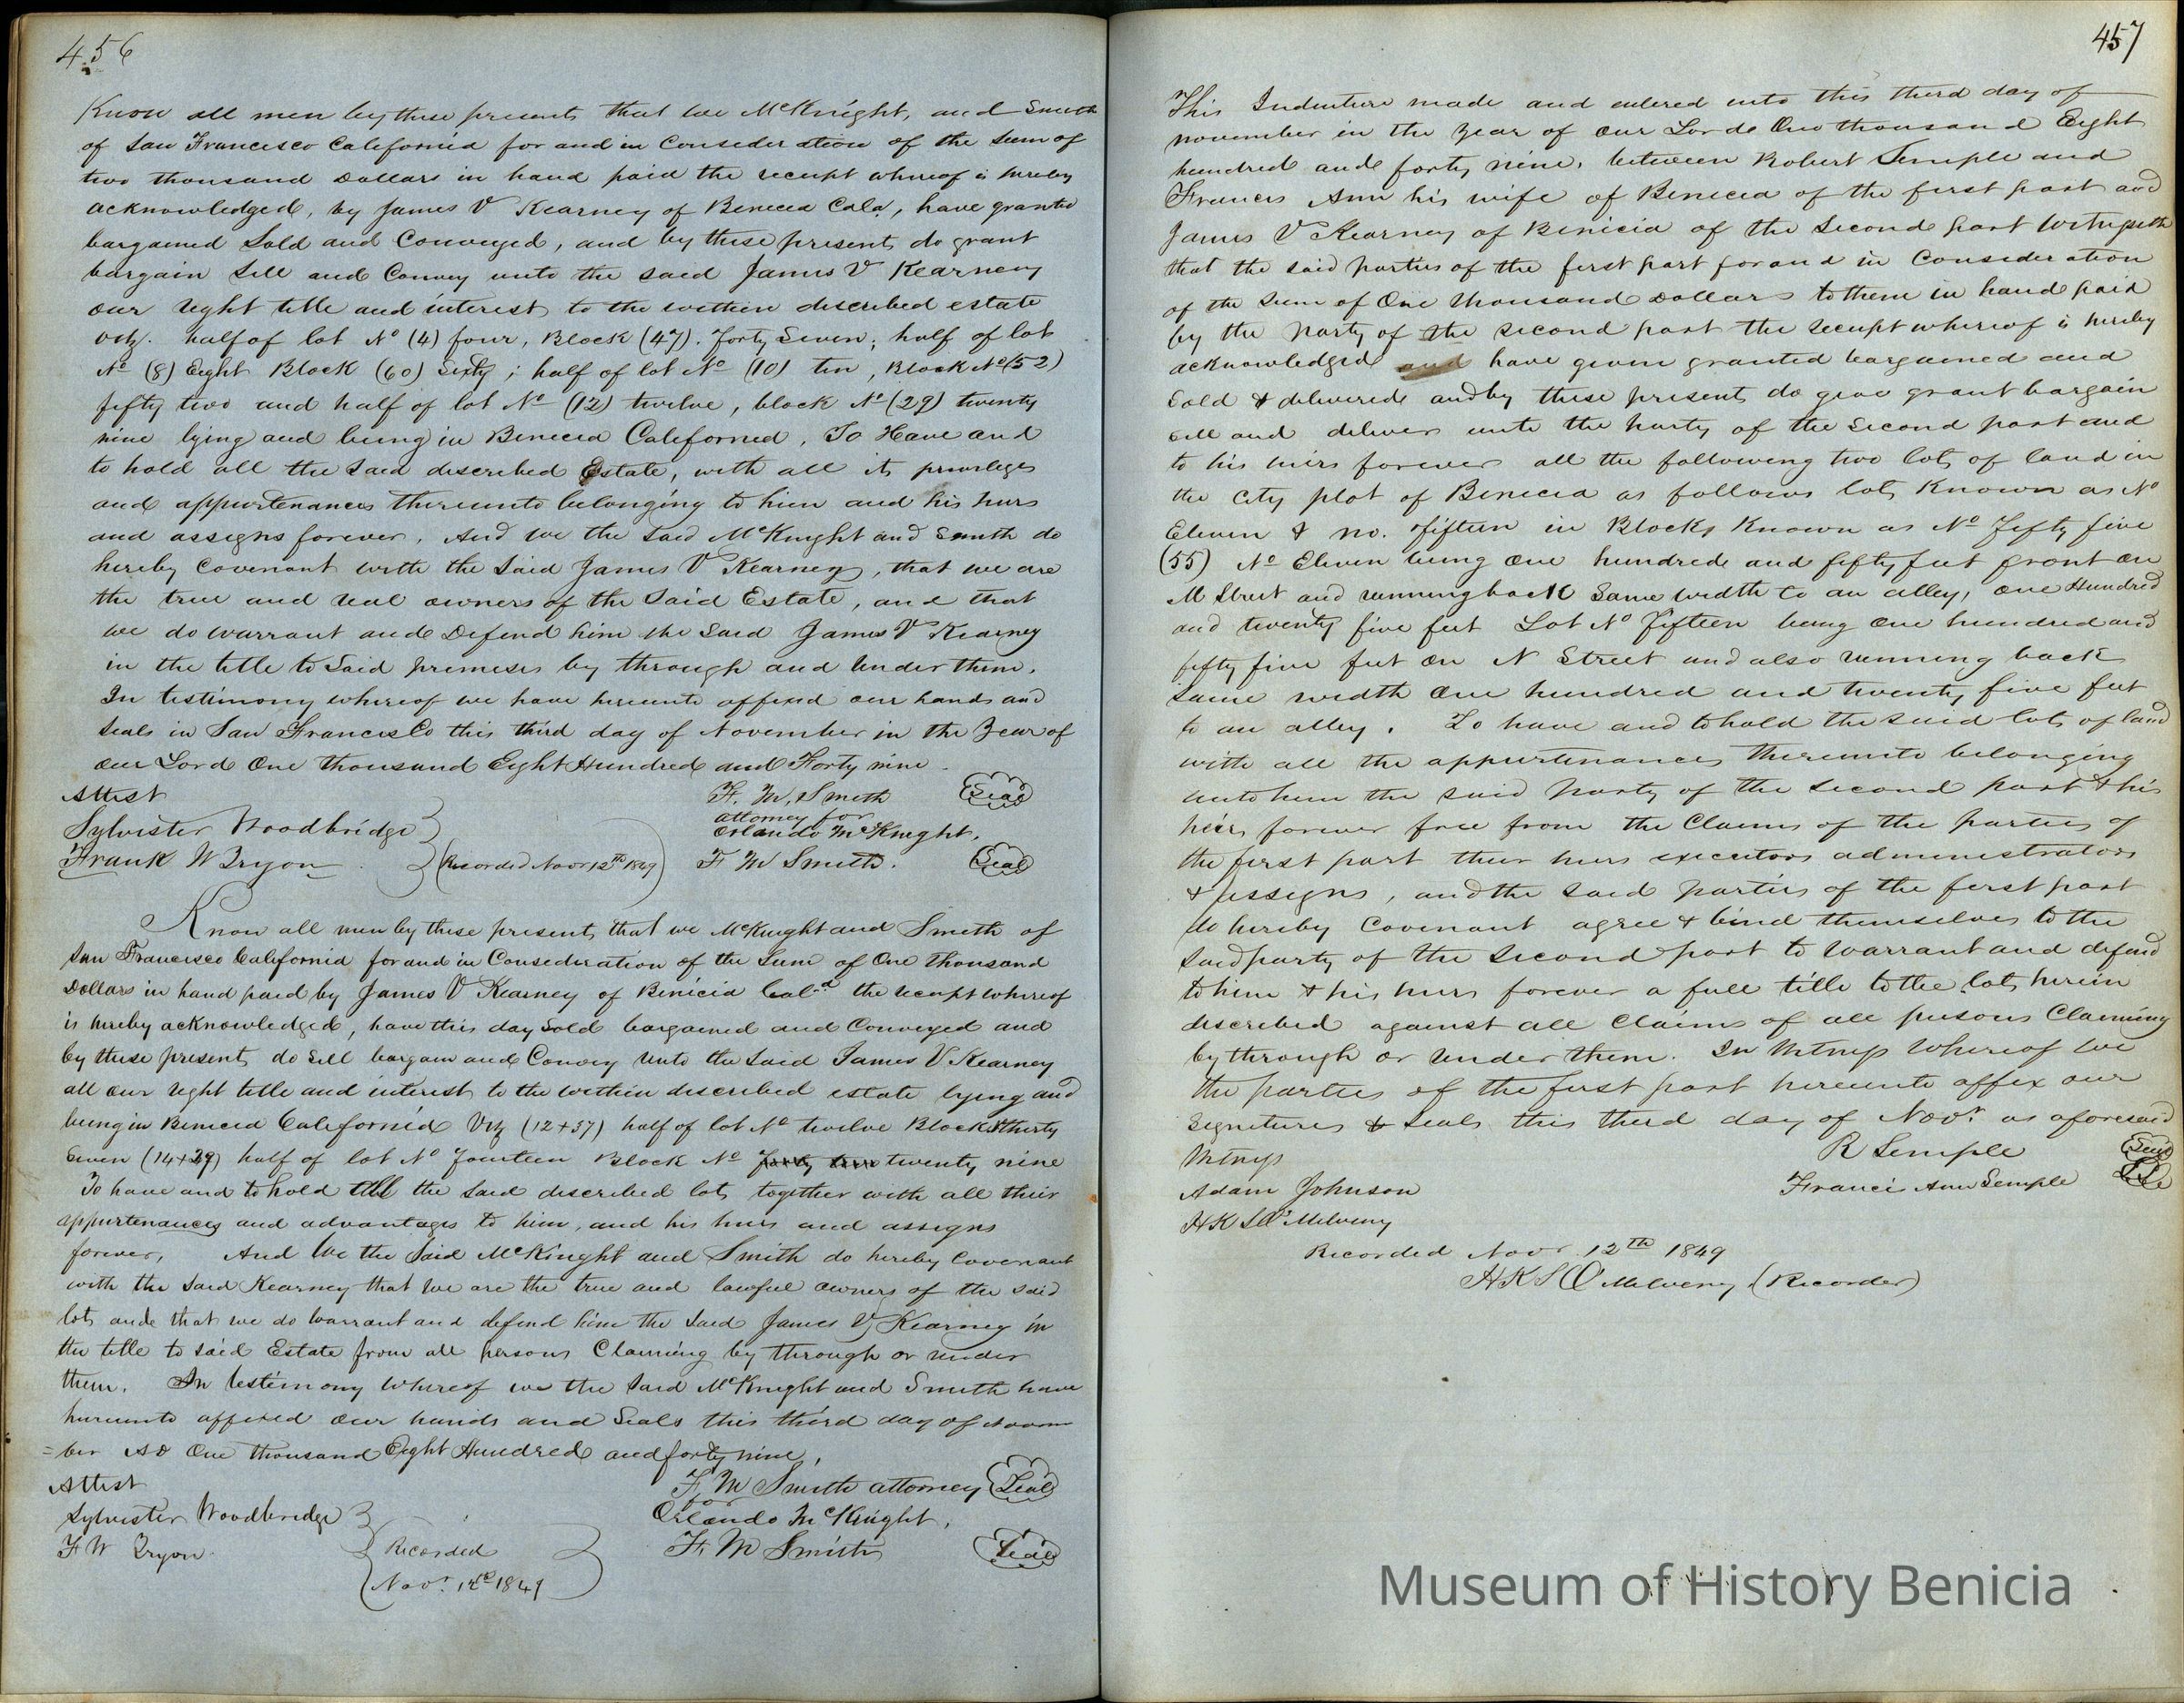 456
Know all men by these presents that we McKnight, and Smith
of San Francisco California for and in Consideration of the Sum of
two thousand Dollars in hand paid the receipt whereof is hereby
acknowledged, by James V Kearney of Benicia Cala, have granted
bargained Sold and Conveyed, and by these presents do grant
bargain Sell and Convey unto the said James V Kearney
our right title and interest to the within described estate
viz. half of lot No (4) four, Block (47). forty Seven; half of lot
No (8) Eight Block (60) Sixty; half of lot No (10) ten, Block No (52)
fifty two and half of lot No (12) twelve, block No (29) twenty
nine lying and being in Benicia California, To Have and
to hold all the Said described Estate, with all its privileges
and appurtenances thereunto belonging to him and his heirs
and assigns forever. And we the Said McKnight and Smith do
hereby Covenant with the Said James V Kearney, that we are
the true and real owners of the Said Estate, and that
we do warrant and Defend him the Said James V Kearney
in the title to Said premises by through and Under them.
In testimony whereof we have hereunto affixed our hands and
Seals in San Francisco this third day of November in the Year of
our Lord One thousand Eight Hundred and Forty nine
Attest
F. M. Smith (Seal)
attorney for
Sylvester Woodbridge
Orlando McKnight.
Frank W Tryon
(Recorded Novr 12th 1849)
F M Smith. (Seal)
Know all men by these presents that we McKnight and Smith of
San Francisco California for and in Consideration of the Sum of One thousand
Dollars in hand paid by James V Kearney of Benicia Cala the receipt whereof
is hereby acknowledged, have this day Sold bargained and Conveyed and
by these presents do Sell bargain and Convey Unto the Said James V. Kearney
all our right title and interest to the within described estate lying and
being in Benicia California Viz (12+37) half of lot No twelve Block thirty
Seven (14+29) half of lot No fourteen Block No forty two twenty nine
To have and to hold all the Said described lots together with all their
appurtenances and advantages to him, and his heirs and assigns
forever, And We the Said McKnight and Smith do hereby Covenant
with the Said Kearney that We are the true and lawful owners of the said
lots and that we do Warrant and defend him the Said James V Kearney in
the title to said Estate from all persons Claiming by through or under
them. In testimony Whereof we the Said McKnight and Smith have
hereunto affixed our hands and Seals this third day of Novem
=ber AD One thousand Eight Hundred and forty nine,
Attest
F, M Smith attorney (Seal)
for
Sylvester Woodbridge
Orlando McKnight,
F W Tryon
F. M Smith (Seal)
Recorded
Novr. 12th 1849
457
This Indenture made and entered into this third day of
november in the Year of our Lord One thousand Eight
hundred and forty nine, between Robert Semple and
Frances Ann his wife of Benicia of the first part and
James V Kearney of Benicia of the Second part Witnesseth
that the said parties of the first part for and in Consideration
of the Sum of One thousand Dollars to them in hand paid
by the Party of the second part the receipt whereof is hereby
acknowledged and have given granted bargained and
Sold & delivered and by these presents do give grant bargain
Sell and deliver unto the party of the Second part and
to his heirs forever all the following two lots of land in
the City plot of Benicia as follows lots Known as No
Eleven & no. fifteen in Blocks Known as No fifty five
(55) No Eleven being One hundred and fifty feet front on
M Street and running back Same width to an alley, One Hundred
and twenty five feet Lot No fifteen being One hundred and
fifty five feet on N Street and also running back
same width One hundred and twenty five feet
to an alley. To have and to hold the said lots of land
with all the appurtenances thereunto belonging
unto him the said Party of the Second part & his
heirs forever free from the Claims of the parties of
the first part their heirs executors administrators
& assigns, and the Said parties of the first part
do hereby Covenant agree & bind themselves to the
Said party of the Second part to Warrant and defend
to him & his heirs forever a full title to the lots herein
described against all Claims of all persons Claiming
by through or Under them. In Witness Whereof We
the parties of the first part hereunto affix our
Signatures & Seals this third day of Novr. as aforesaid
Witness
R Semple (Seal)
Adam Johnson
Frances Ann Semple
H K S O'Melveny
Recorded Novr. 12th 1849
H K S O'Melveny (Recorder)
Museum of History Benicia